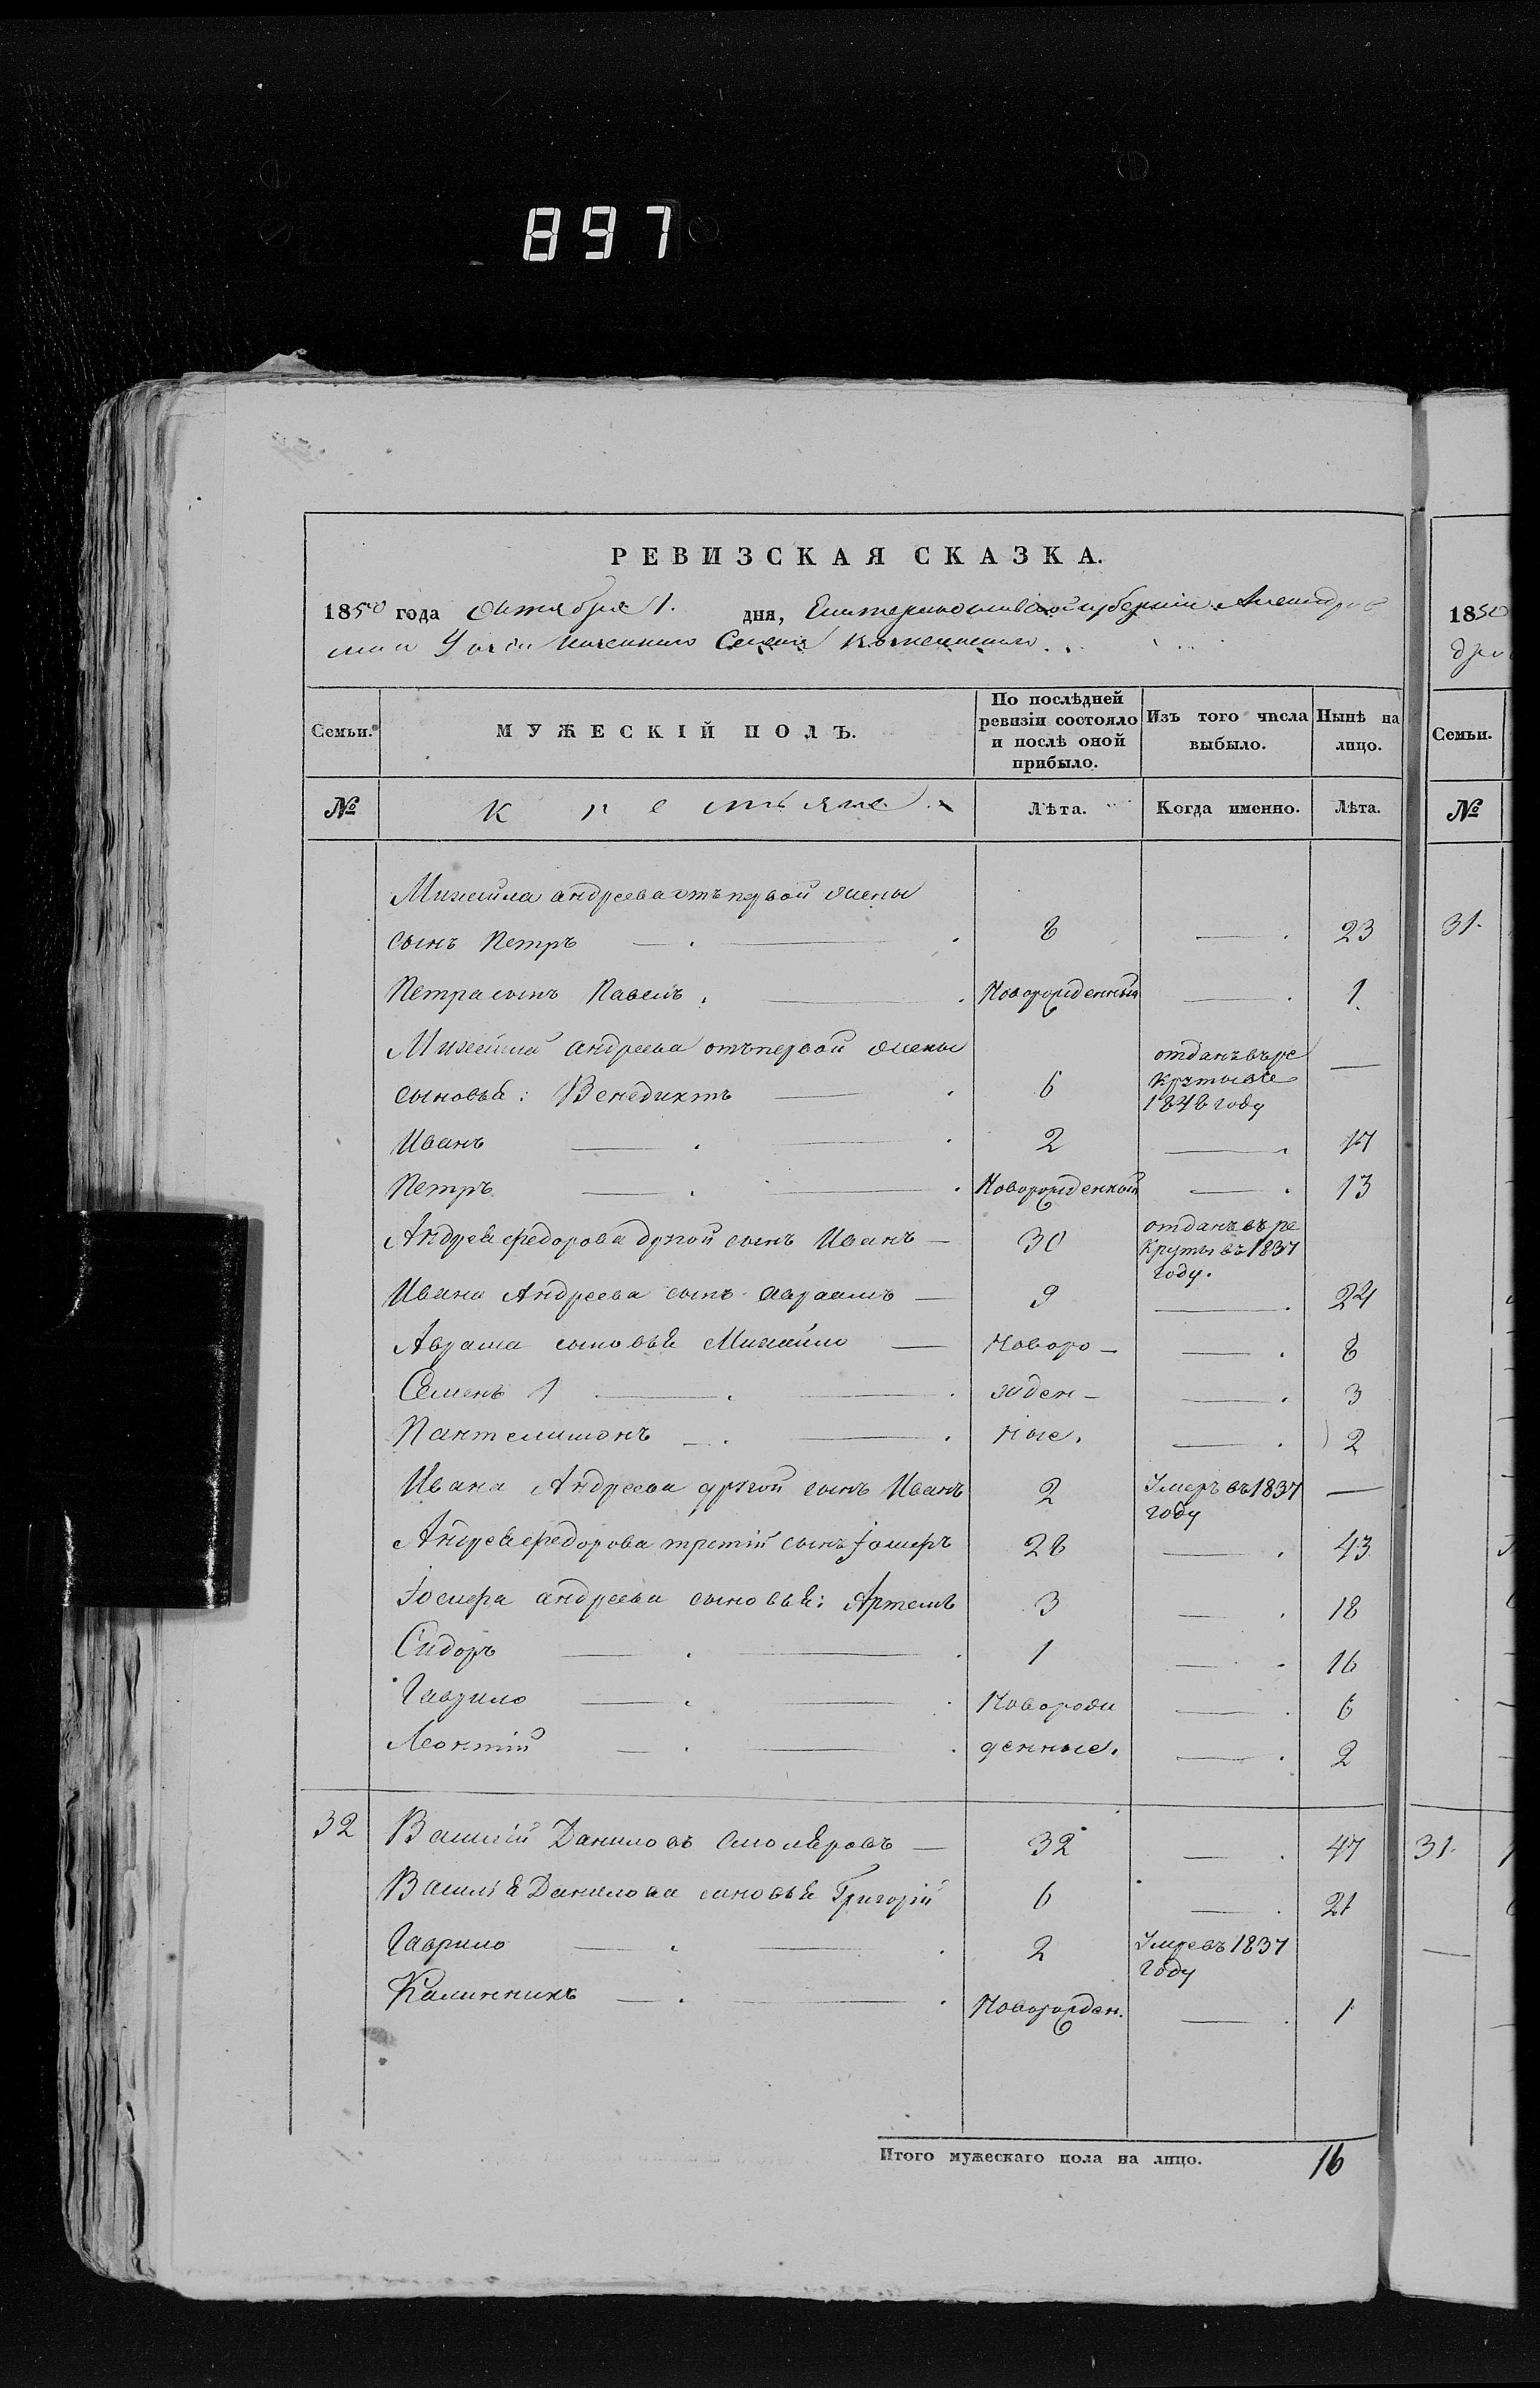 897
РЕВИЗСКАЯ СКАЗКА.
1850 года Октября 1. дня, Екатеринославской губернии Александров
1850
Семьи. МУЖЕСКІЙ ПОЛЪ. По послѣдней ревизіи состояло и послѣ оной прибыло. Изъ того числа выбыло. Нынѣ на лицо.
Семьи.
№ Крестьяне Лѣта. Когда именно. Лѣта.
№
Михайла андреева отъ первой жены
сынъ Петръ — 8 — 23
31.
Петра сынъ Павелъ. — Новорожденный — 1
Михайла андреева отъ первой жены
сыновья: Венедиктъ — 6 отданъ въ ре круты въ 1848 году —
Иванъ — 2 — 17
Петръ — Новорожденный — 13
Андрея федорова другой сынъ Иванъ — 30 отданъ въ ре круты въ 1837 году.
Ивана Андреева сынъ Авраамъ — 9 — 24
Аврама сыновья Михайло — Новоро — 8
Семенъ 1 — жден — 3
Пантелимонъ — ные. — 2
Ивана Андреева другой сынъ Иванъ 2 Умеръ въ 1837 году —
Андрея федорова третій сынъ Іосифъ 28 — 43
Іосифа андреева сыновья: Артемъ 3 — 18
Сидоръ — 1 — 16
Гаврило — Новорож — 6
Леонтій — денные. — 2
32 Василій Даниловъ — 32 — 47
31.
Василія Данилова сыновья Григорій 6 — 21
Гаврило — 2 Умре въ 1837 году
Калинникъ — Новорожден. — 1
Итого мужескаго пола на лицо. 16